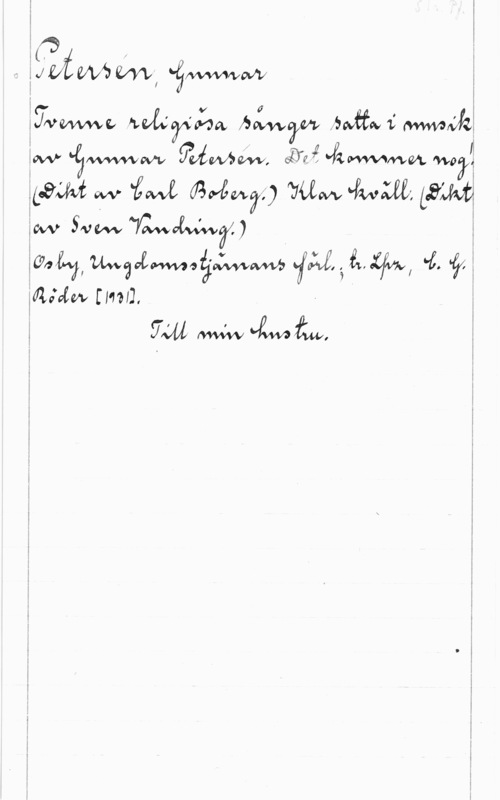 Petersén, Gunnar
Tvenne religiösa sånger satta i musik
av Gunnar Petersén. Det kommer nog!
(Dikt av Carl Boberg.) Klar kväll. (Dikt
av Sven Vandring.)
Osby, Ungdomsstjärnans förl.; tr. Lpz, C. G.
Röder [1931].
Till min hustru.